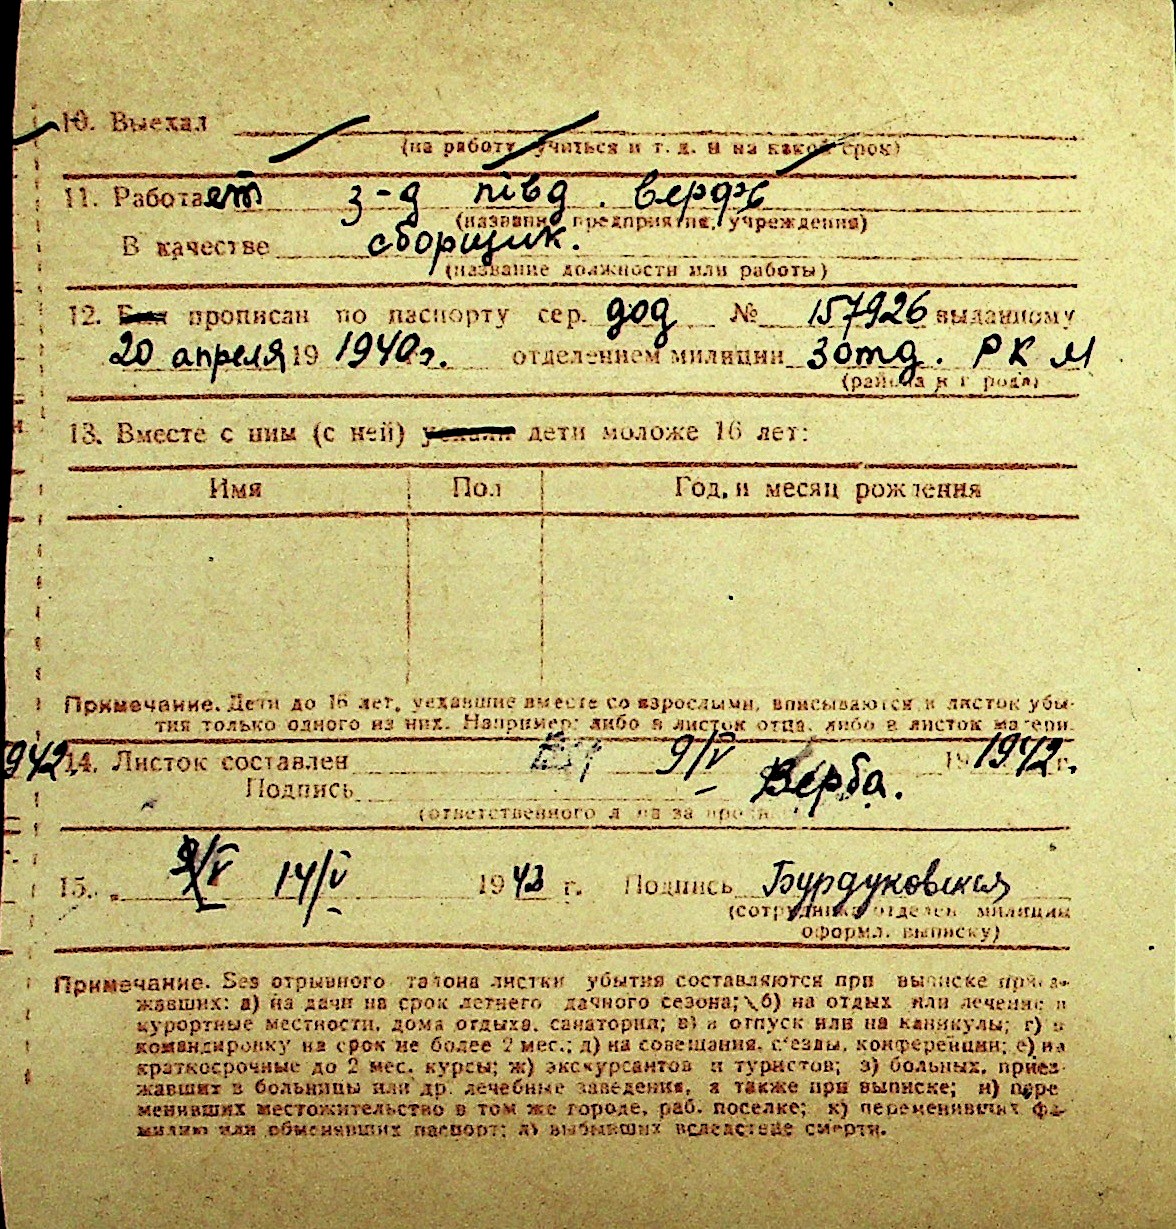 10. Выехал
(на работу, учиться и т. д. и на какой срок)
11. Работает з-д півд. верфь
(название предприятия, учреждения)
В качестве сборщик.
(название должности или работы)
12. Был прописан по паспорту сер. дод № 157926 выданному
20 апреля 19 1940 г. отделением милиции 3 отд. РКМ
(района и города)
13. Вместе с ним (с ней) уехали дети моложе 16 лет:
Имя Пол Год, и месяц рождения
Примечание. Дети до 16 лет, уехавшие вместе со взрослыми, вписываются в листок убы-
тия только одного из них. Например: либо в листок отца, либо в листок матери.
942. 14. Листок составлен 9/V 19 1942 г.
Подпись Верба.
(ответственного л на за проп
15. „ 9/V 14/V 1942 г. Подпись Бурдуковская
(сотрудника отделен милиции
оформл. выписку)
Примечание. Без отрывного талона листки убытия составляются при выписке приез-
жавших: а) на дачи на срок летнего дачного сезона; б) на отдых или лечение в
курортные местности, дома отдыха, санатории; в) в отпуск или на каникулы; г) в
командировку на срок не более 2 мес.; д) на совещания, съезды, конференции; е) на
краткосрочные до 2 мес. курсы; ж) экскурсантов и туристов; з) больных, приез-
жавших в больницы или др. лечебные заведения, а также при выписке; и) пере
менивших местожительство в том же городе, раб. поселке; к) переменивших фа-
милию или обменявших паспорт; л) выбывших вследствие смерти.